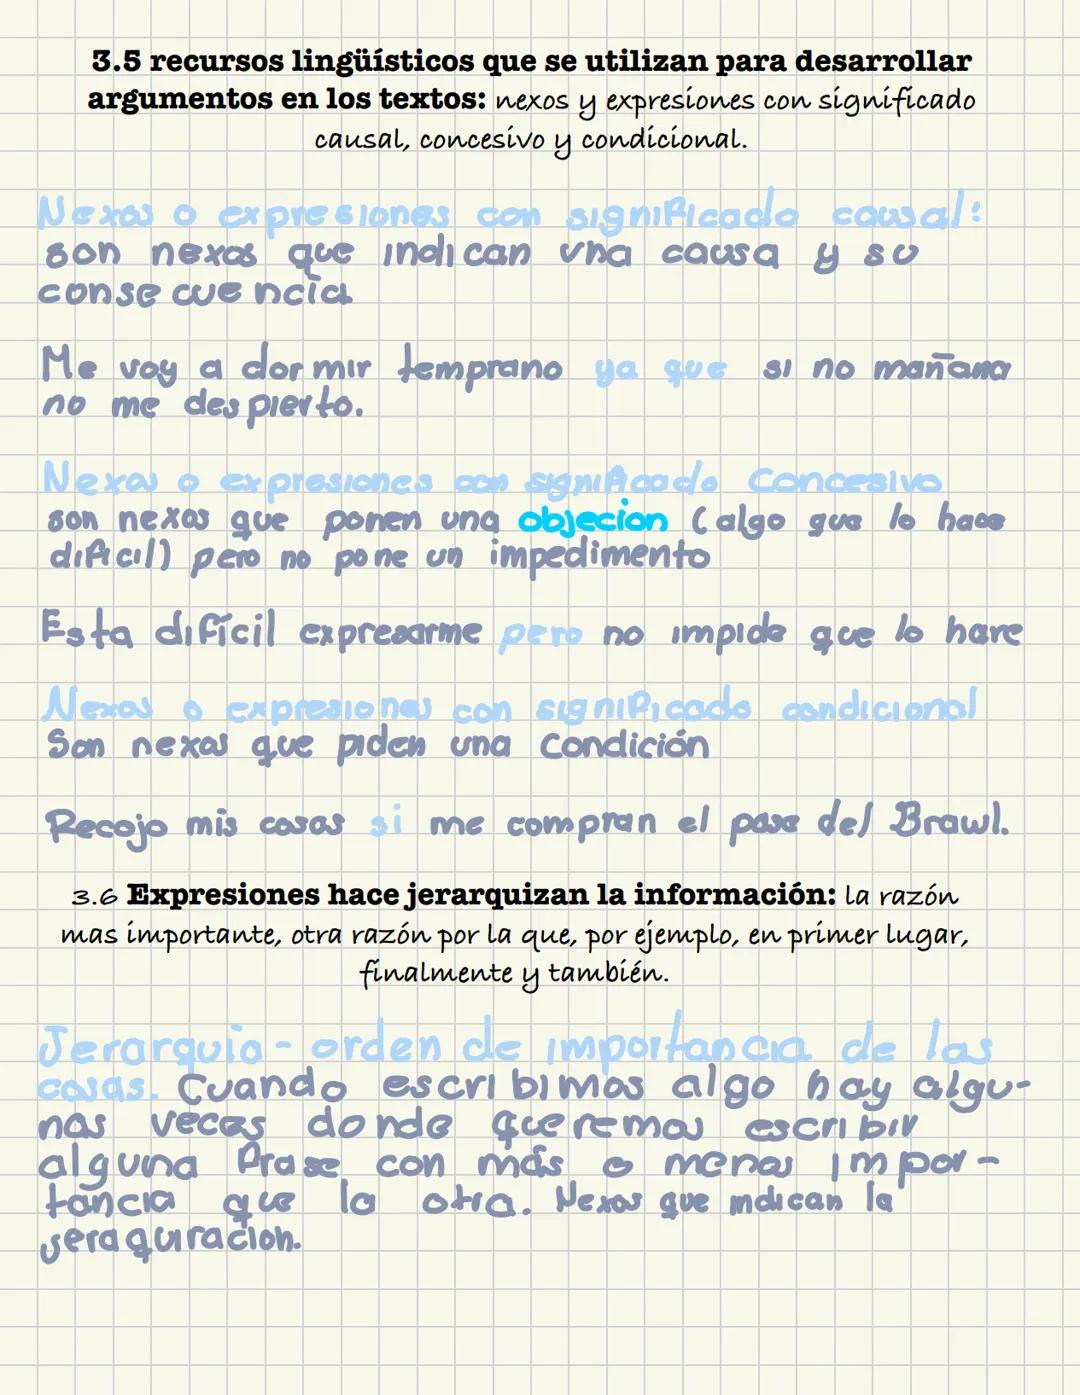 3.5 recursos lingüísticos que se utilizan para desarrollar
argumentos en los textos: nexos y expresiones con significado
causal, concesivo y condicional.
Nexos o expresiones con significado causal:
son nexos que indican una causa y su
consecuencia
Me voy a dormir temprano ya que si no mañana
no me despierto.
Nexos o expresiones con significado Concesivo
son nexos que ponen una objecion (algo que lo hace
dificil) pero no pone un impedimento
Esta difícil expresarme pero no impide que lo hare
Nexos o expresiones con significado condicional
Son nexos que piden una Condición
Recojo mis cosas si me compran el pase del Brawl.
3.6 Expresiones hace jerarquizan la información: la razón
mas importante, otra razón por la que, por ejemplo, en primer lugar,
finalmente y también.
Jerarquia - orden de importancia de las
cosas. Cuando escribimos algo hay algu-
nas veces donde queremos escribir
alguna frase con más o menos impor-
tancia que la otra. Nexos que indican la
jeraquiracion.